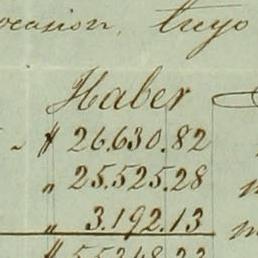 ocasion, treyo
Haber
$ 26.630.82
„ 25.525.28
„ 3.192.13
$ 55348.23